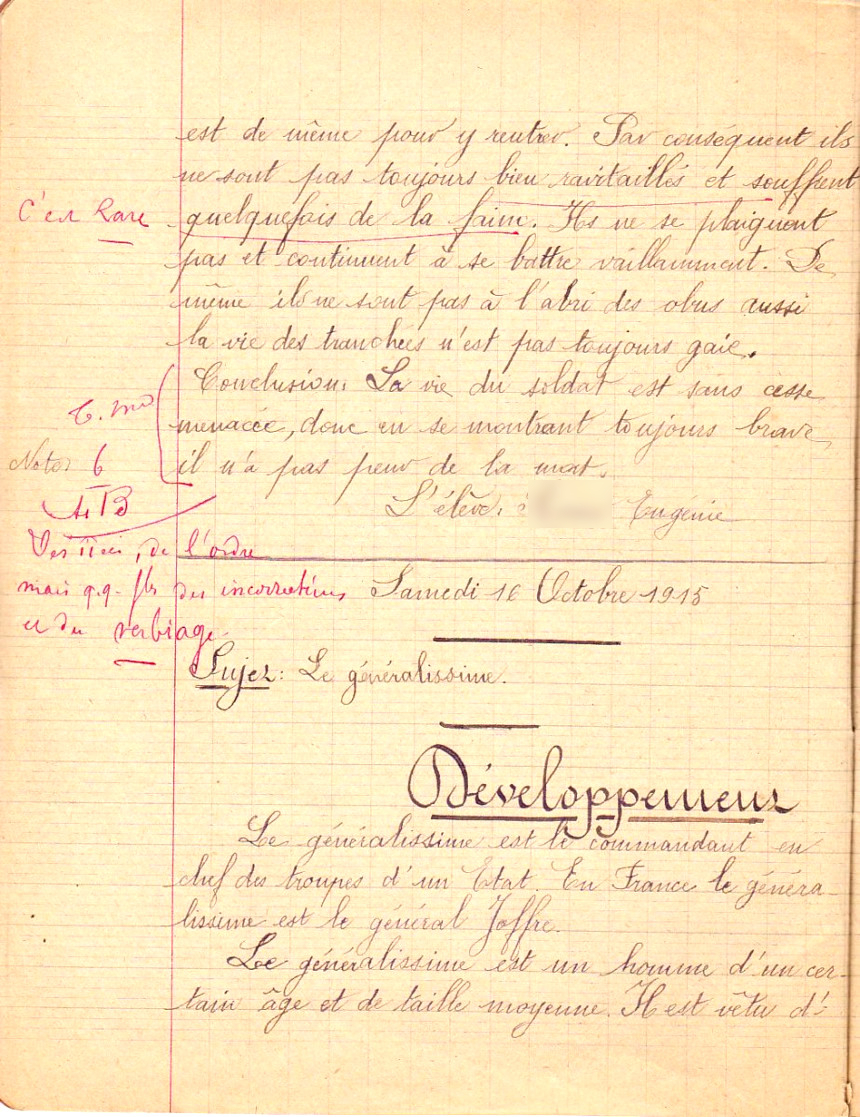 est de même pour y rentrer. Par conséquent ils
ne sont pas toujours bien ravitaillés et souffrent
C'est Rare
quelquefois de la faim. Ils ne se plaignent
pas et continuent à se battre vaillamment. De
même ils ne sont pas à l'abri des obus aussi
la vie des tranchées n'est pas toujours gaie.
Conclusion: La vie du soldat est sans cesse
menacée, donc en se montrant toujours brave,
Note: 6
il n'a pas peur de la mort.
L'élève: Eugénie
AB
Des idées, de l'ordre
mais q.q. fs des incorrections
et du verbiage.
Samedi 16 Octobre 1915
Sujet: Le généralissime.
Développement
Le généralissime est le commandant en
chef des troupes d'un Etat. En France le généra-
lissime est le général Joffre.
Le généralissime est un homme d'un cer-
tain âge et de taille moyenne. Il est vêtu d'-